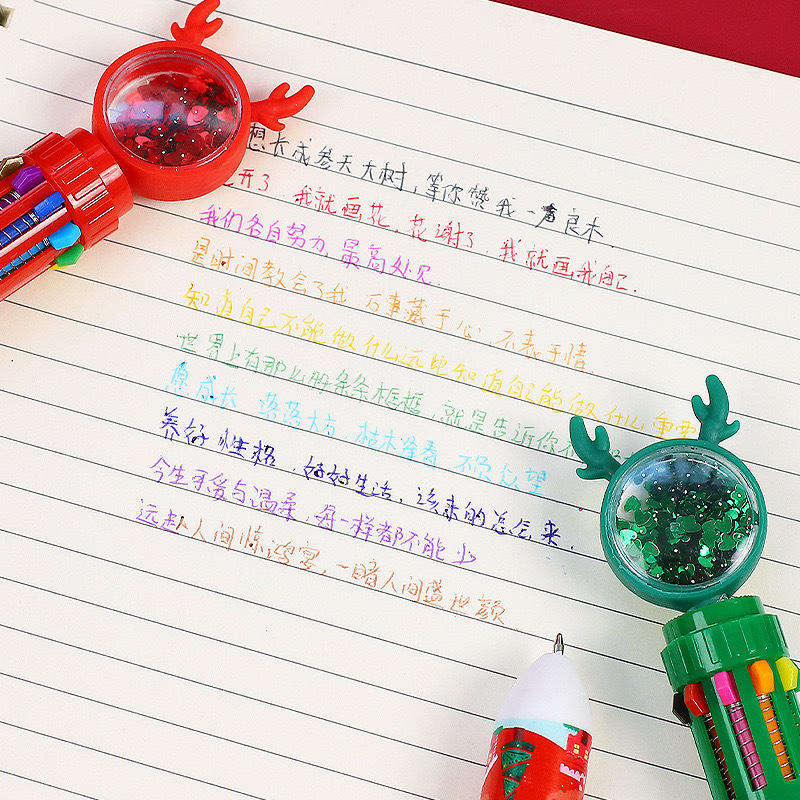 想长成参天大树，等你赞我一声良木.
开了.我就画花,花谢了.我就画我自己.
我们各自努力,最高处见.
是时间教会了我 万事藏于心,不表于情.
知道自己不能做什么远比知道自己能做什么重要
世界上有那么肋条条框框,就是告诉你
愿成长 落落大方,枯木逢春 不负众望
养好性格.好好生活.该来的总会来.
今生可爱与温柔,每一样都不能少
远赴人间惊鸿宴,一睹人间盛世颜